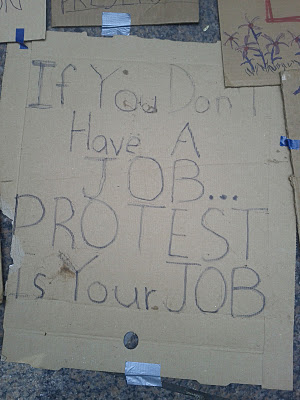 If You Don't
Have A
JOB...
PROTEST
Is Your JOB